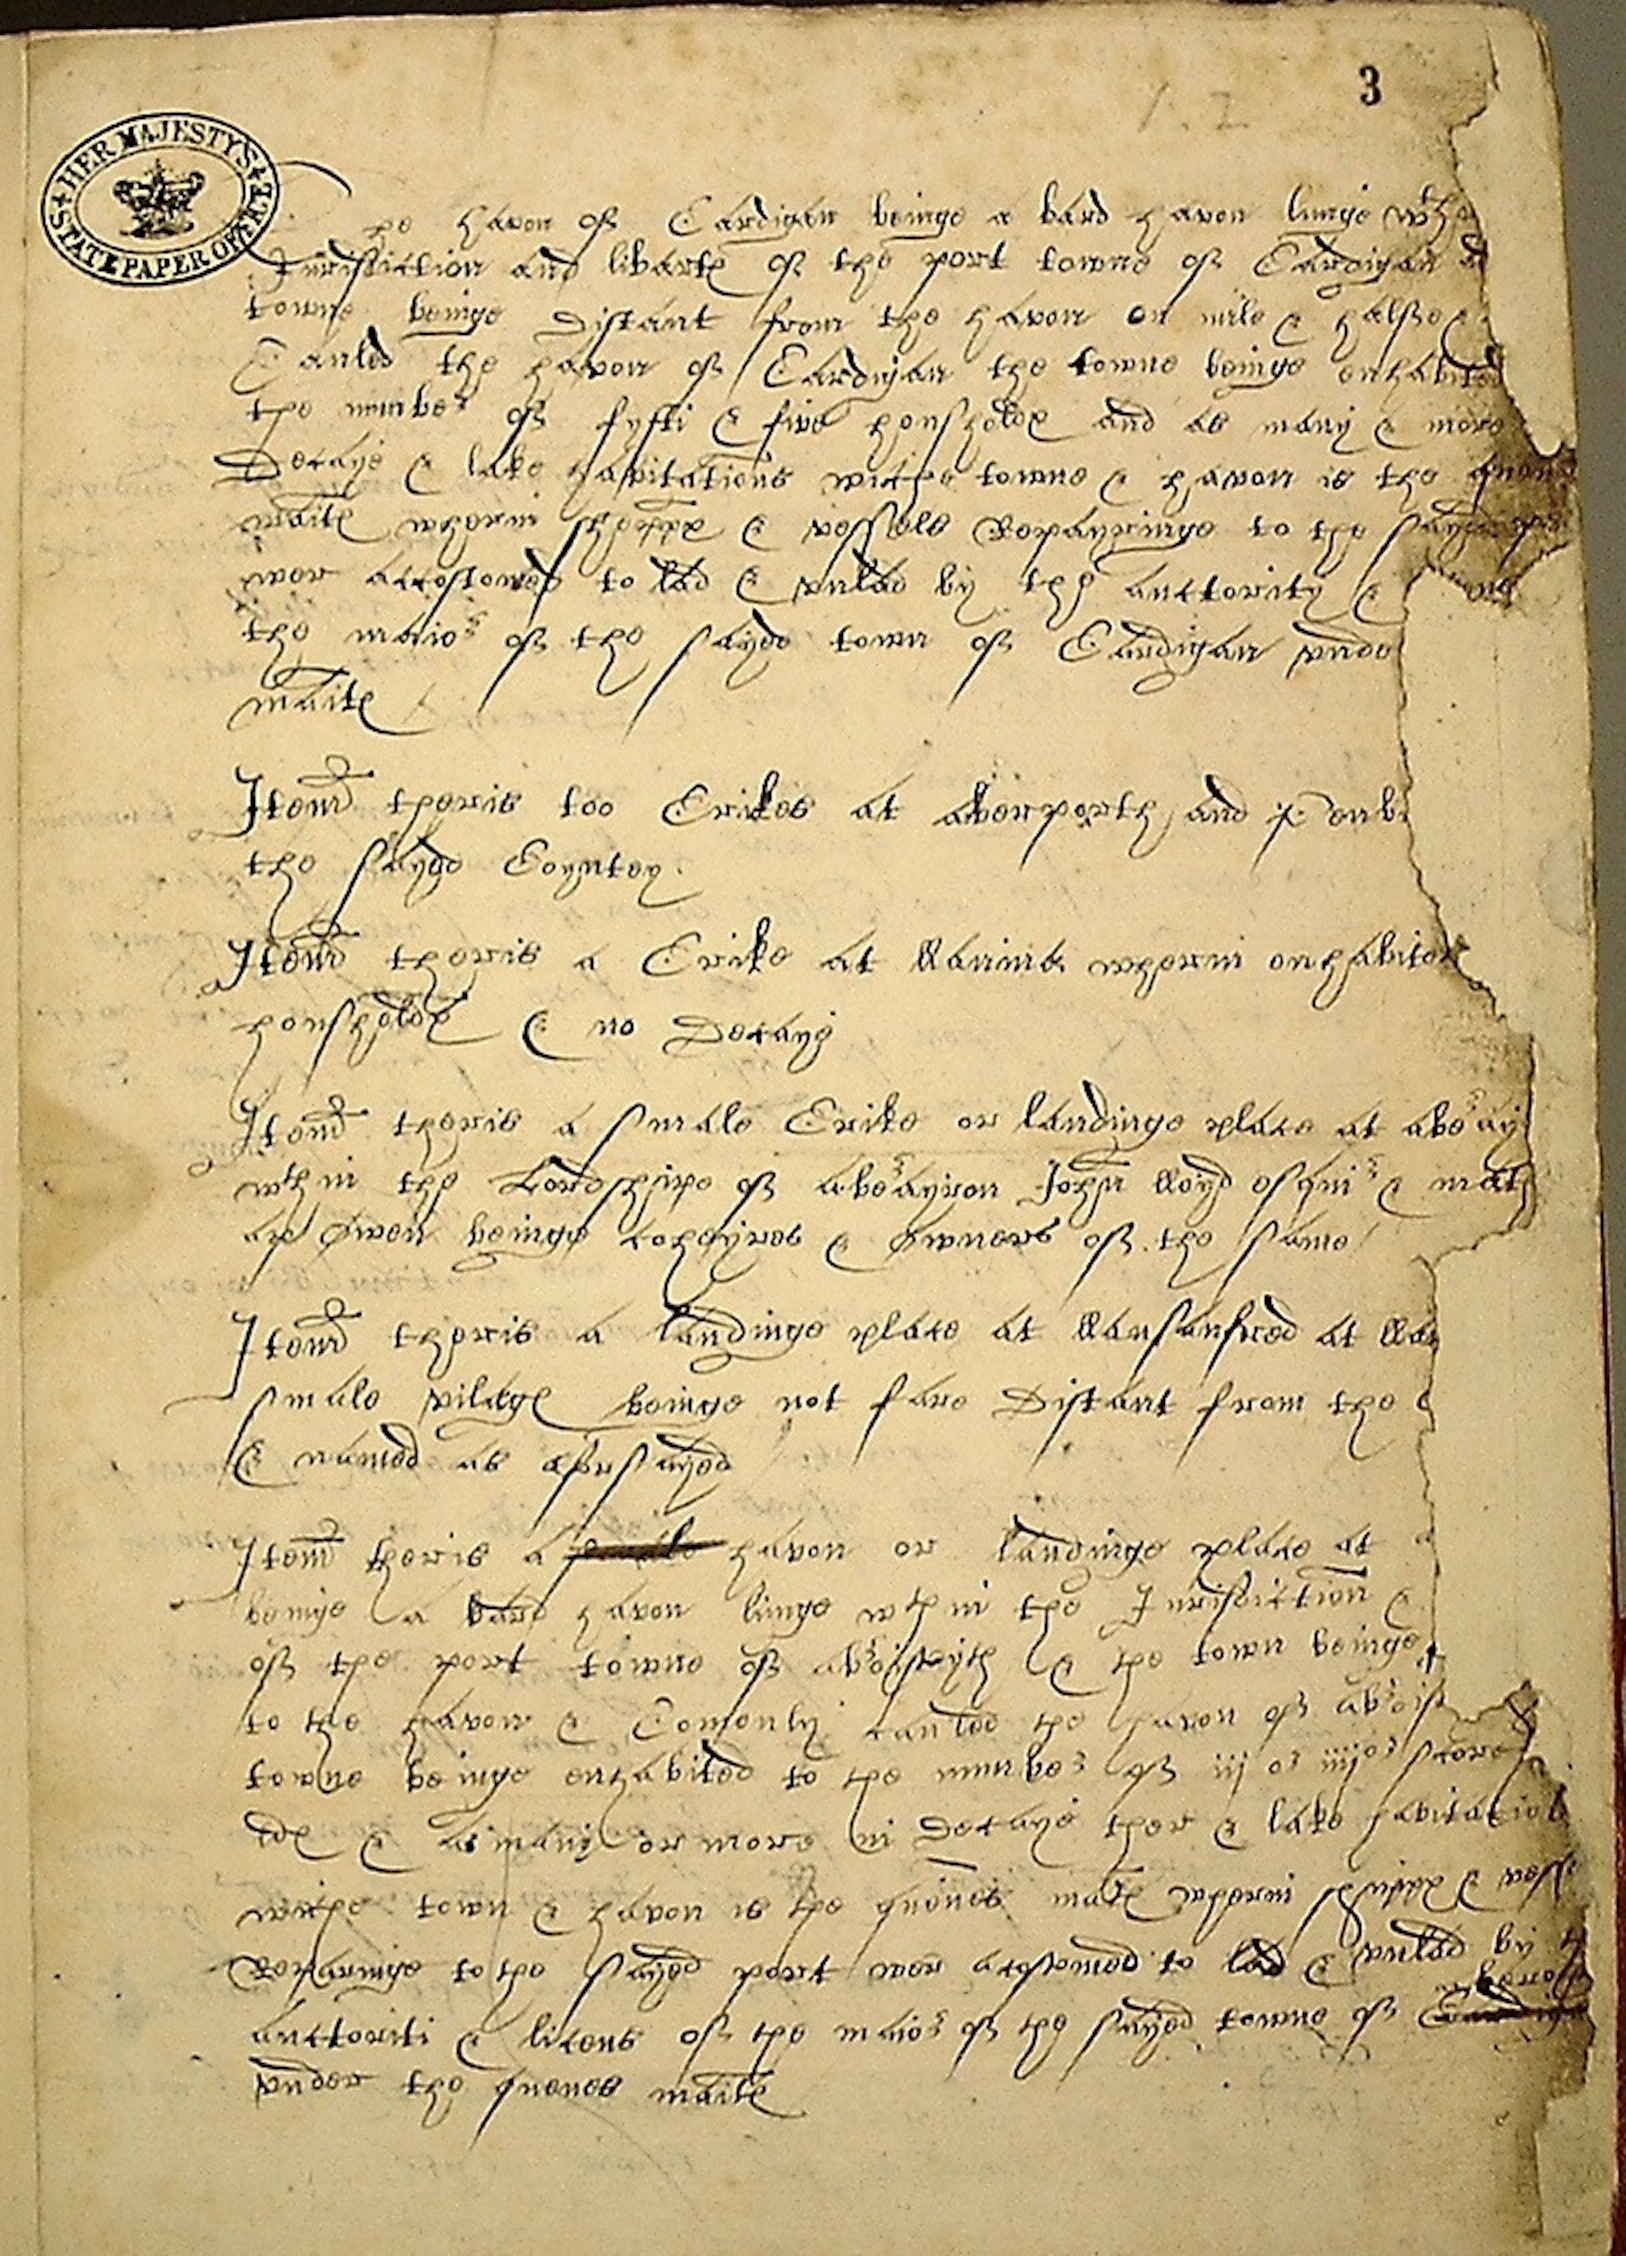 3
HER MAJESTY'S STATE PAPER OFFICE
The haven of Cardigan beinge a bard haven liinge wth
Jurisdiction and libartes of the port towne of Cardigan
towne beinge distant from the haven on mile & halfe &
Cauled the haven of Cardigan the towne beinge enhabited
the number of fyfti & five housholdes and as many & more
decaye & lake habitations wiche towne & haven is the quen
maites wherin sheppes & vessels Repayringe to the sayed
wer accostomed to lad & vnlad by the auctority &
the maior of the sayed town of Cardigan vnde
maites
Item theris too Crikes at aberporth and penb
the sayde Coyntey.
Item theris a Crike at llanina wherin enhabited
housholdes & no decaye
Item theris a smale Crike or landinge place at aberay
wthin the Lordshipe of aberayron John lloyd esquir & math
ap Owen beinge coheyres & Owners of the same
Item theris a landinge place at llansanfred at llan
smale vilages beinge not fare distant from the
& named as aforsayed
Item theris a smale haven or landinge place at a
beinge a bard haven liinge wthin the Jurisdiction &
of the port towne of aberistwyth & the town beinge
to the haven & Comonly cauled the haven of aberist
towne beinge enhabited to the number of iij or iiijor score
des & as many or more in decaye ther & lake habitations
wiche town & haven is the quenes maites wherin shippes & vess
Reparinge to the sayed port wer acostomed to lad & vnlad by
auctoriti & licens of the maior of the sayed towne of Cardiga
vnder the quenes maites